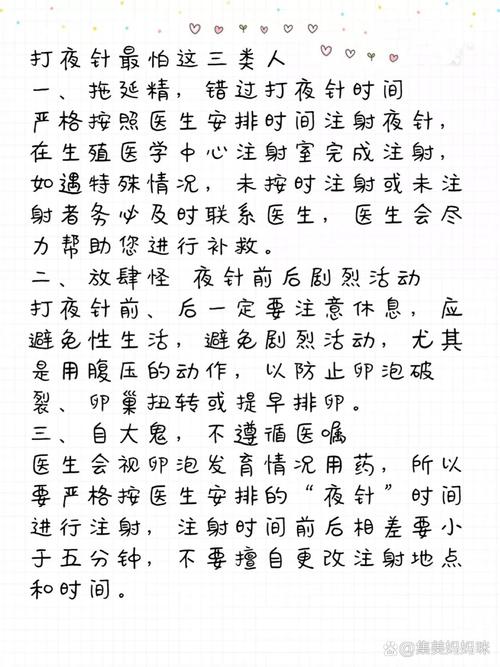 打夜针最怕这三类人
一、拖延精，错过打夜针时间
严格按照医生安排时间注射夜针，
在生殖医学中心注射室完成注射，
如遇特殊情况，未按时注射或未注
射者务必及时联系医生，医生会尽
力帮助您进行补救。
二、放肆怪 夜针前后剧烈活动
打夜针前、后一定要注意休息，应
避免性生活，避免剧烈活动，尤其
是用腹压的动作，以防止卵泡破
裂、卵巢扭转或提早排卵。
三、自大鬼，不遵循医嘱
医生会视卵泡发育情况用药，所以
要严格按医生安排的“夜针”时间
进行注射，注射时间前后相差要小
于五分钟，不要擅自更改注射地点
和时间。
@集美妈妈咪